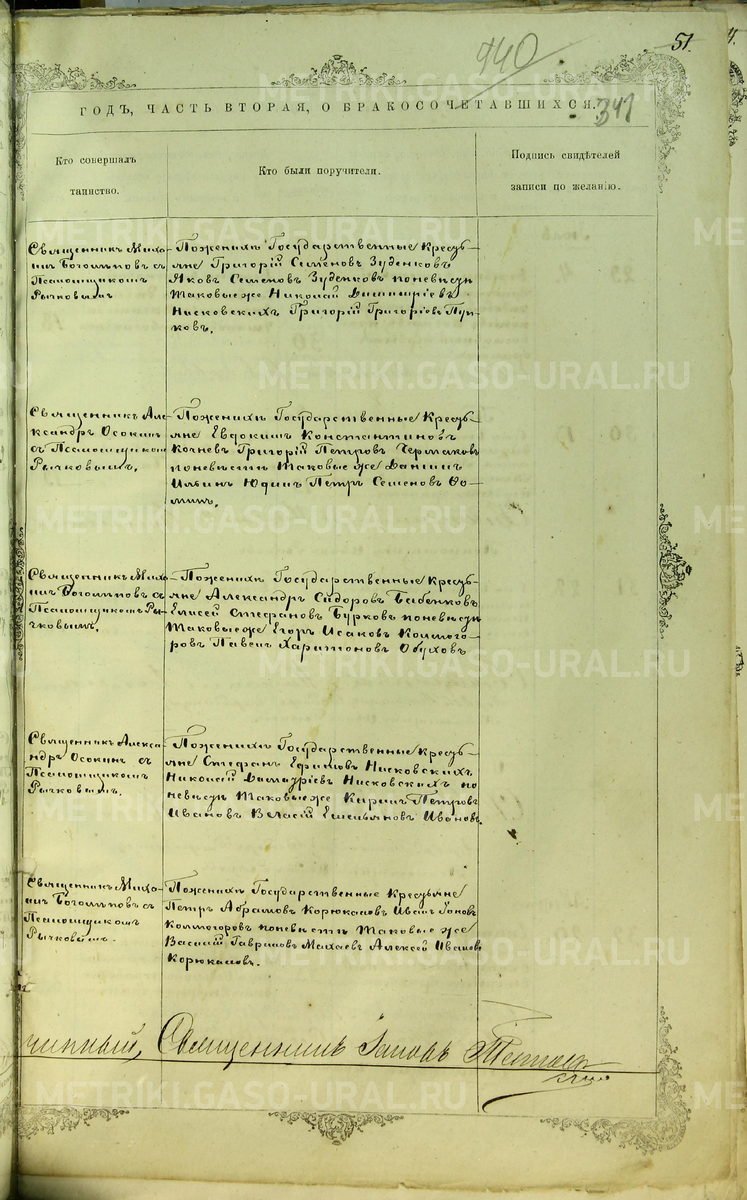 940
51.
341
ГОДЪ, ЧАСТЬ ВТОРАЯ, О БРАКОСОЧЕТАВШИХСЯ.
Кто совершалъ
таинство.
Кто были поручители.
Подпись свидѣтелей
записи по желанію.
Священникъ Миха-
илъ Боголѣповъ съ
Псаломщикомъ
Рычковымъ
По женихѣ Государственные Кресть-
яне Григорій Семеновъ Зуденковъ
Яковъ Семеновъ Зуденковъ по невѣсти
таковые же Николай Димитріевъ
Нисковскихъ Григорій Григоріевъ Пуп-
ковъ.
Священникъ Але-
ксандръ Осокинъ
съ Псаломщикомъ
Рычковымъ.
По женихѣ Государственные Кресть-
яне Евдокимъ Константиновъ
Кочневъ Григорій Петровъ Чермаковъ
по невѣсти таковые же Даниилъ
Ильинъ Юдинъ Петръ Семеновъ Ѳо-
минъ.
Священникъ Миха-
илъ Боголѣповъ съ
Псаломщикомъ Ры-
чковымъ.
По женихѣ Государственные Кресть-
яне Александръ Сидоровъ Бабенковъ
Елисей Стефановъ Бурковъ по невѣсти
таковые же Егоръ Исаковъ Колмого-
ровъ Павелъ Харитоновъ Обуховъ
Священникъ Алекса-
ндръ Осокинъ съ
Псаломщикомъ
Рычковымъ.
По женихѣ Государственные Кресть-
яне Стефанъ Ефимовъ Нисковскихъ
Николай Нисковскихъ по
невѣсти таковые же Кирилъ Петровъ
Ивановъ Власій Емельяновъ Ивановъ.
Священникъ Миха-
илъ Боголѣповъ съ
Псаломщикомъ
Рычковымъ.
По женихѣ Государственные Крестьяне
Петръ Абрамовъ Корюкаловъ Иванъ Іоновъ
Колмогоровъ по невѣсти таковые же
Василій Гавриловъ Махаевъ Алексей Ивановъ
Корюкаловъ.
чинный, Священникъ Іаковъ
METRIKI.GASO-URAL.RU
METRIKI.GASO-URAL.RU
METRIKI.GASO-URAL.RU
METRIKI.GASO-URAL.RU
METRIKI.GASO-URAL.RU
METRIKI.GASO-URAL.RU
METRIKI.GASO-URAL.RU
METRIKI.GASO-URAL.RU